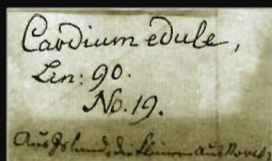 Cardium edule,
Lin: 90.
No. 19.
Aus Island, die kleinen aus Norw.